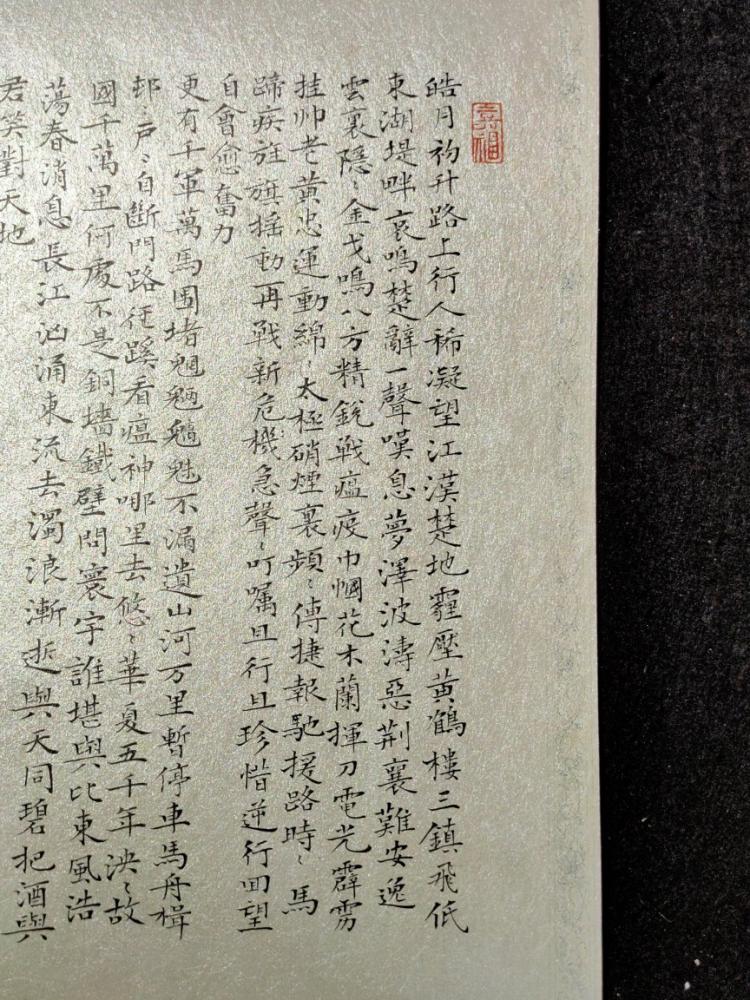 皓月初升路上行人稀凝望江漢楚地霾壓黄鶴樓三鎮飛低
東湖堤畔哀鳴楚辭一聲嘆息夢澤波濤惡荆襄難安逸
雲裏隱〻金戈鳴八方精銳戰瘟疫巾幗花木蘭揮刀電光霹雳
挂帅老黄忠運動綿〻太極硝煙裏頻〻傳捷報馳援路時〻馬
蹄疾旌旗摇動再戰新危機急聲〻叮嘱且行且珍惜逆行回望
自會愈奮力
更有千軍萬馬围堵魍魎魑魅不漏遺山河万里暫停車馬舟楫
邨〻户〻自斷門路徑蹊看瘟神哪里去悠〻華夏五千年泱〻故
國千萬里何處不是銅墻鐵壁問寰宇誰堪與比東風浩
蕩春消息長江汹涌東流去濁浪漸逝與天同碧把酒與
君笑對天地